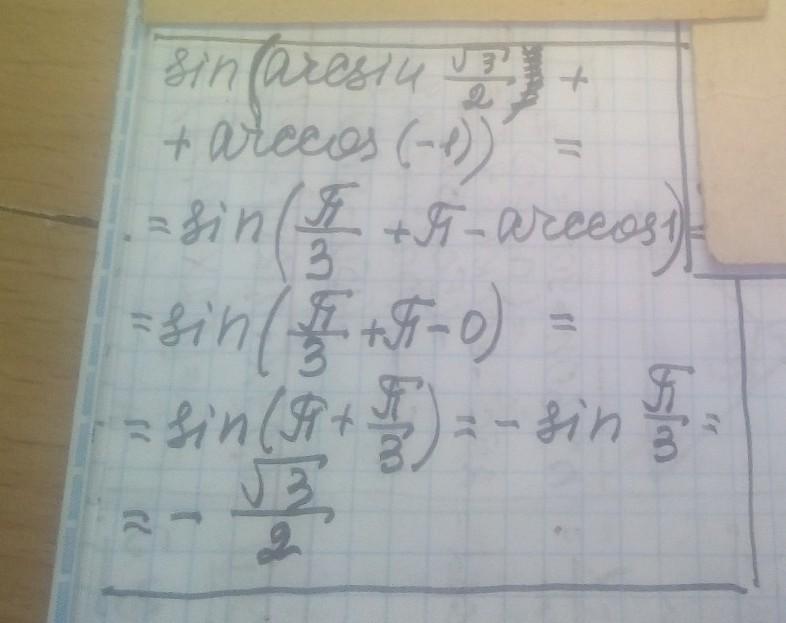 sin(arcsin √3/2 +
+ arccos(-1)) =
= sin(π/3 + π - arccos1) =
= sin(π/3 + π - 0) =
= sin(π + π/3) = - sin π/3 =
= - √3/2